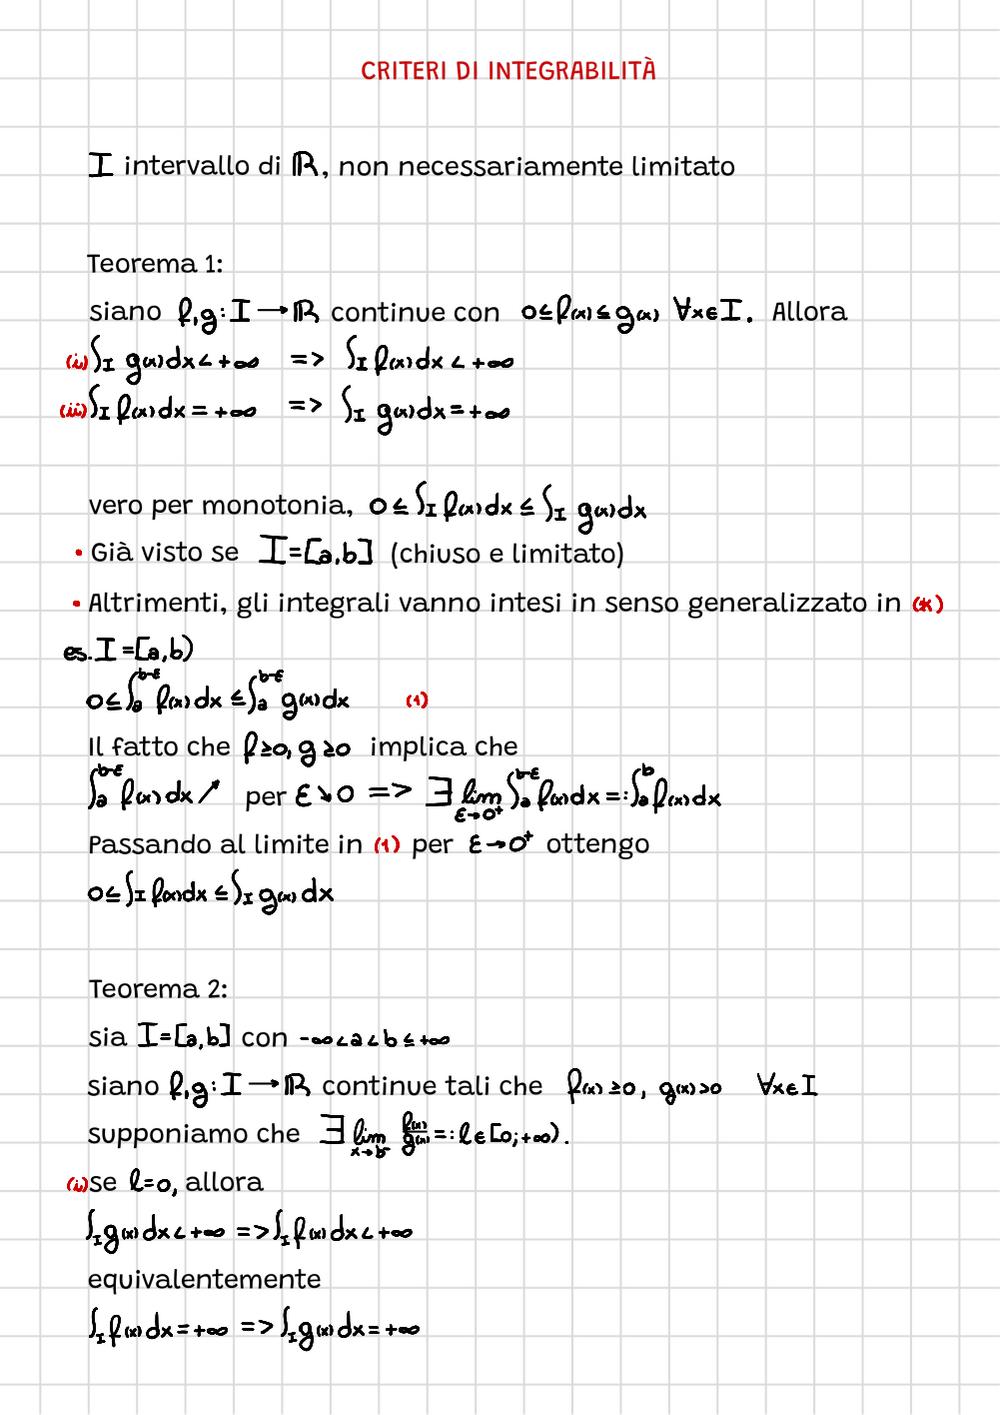 CRITERI DI INTEGRABILITÀ
I intervallo di ℝ, non necessariamente limitato
Teorema 1:
siano f,g: I → ℝ continue con 0≤f(x)≤g(x) ∀x∈I. Allora
(i) ∫_I g(x)dx < +∞ => ∫_I f(x)dx < +∞
(ii) ∫_I f(x)dx = +∞ => ∫_I g(x)dx = +∞
vero per monotonia, 0 ≤ ∫_I f(x)dx ≤ ∫_I g(x)dx
• Già visto se I=[a,b] (chiuso e limitato)
• Altrimenti, gli integrali vanno intesi in senso generalizzato in (*)
es. I=[a,b)
0≤∫_a^{b-ε} f(x)dx ≤ ∫_a^{b-ε} g(x)dx (1)
Il fatto che f≥0, g≥0 implica che
∫_a^{b-ε} f(x)dx ↗ per ε↘0 => ∃ lim_{ε→0⁺} ∫_a^{b-ε} f(x)dx =: ∫_a^b f(x)dx
Passando al limite in (1) per ε→0⁺ ottengo
0≤∫_I f(x)dx ≤ ∫_I g(x)dx
Teorema 2:
sia I=[a,b] con -∞<a<b≤+∞
siano f,g: I → ℝ continue tali che f(x)≥0, g(x)>0 ∀x∈I
supponiamo che ∃ lim_{x→b⁻} f(x)/g(x) =: l∈[0;+∞).
(i) se l=0, allora
∫_I g(x)dx < +∞ => ∫_I f(x)dx < +∞
equivalentemente
∫_I f(x)dx = +∞ => ∫_I g(x)dx = +∞